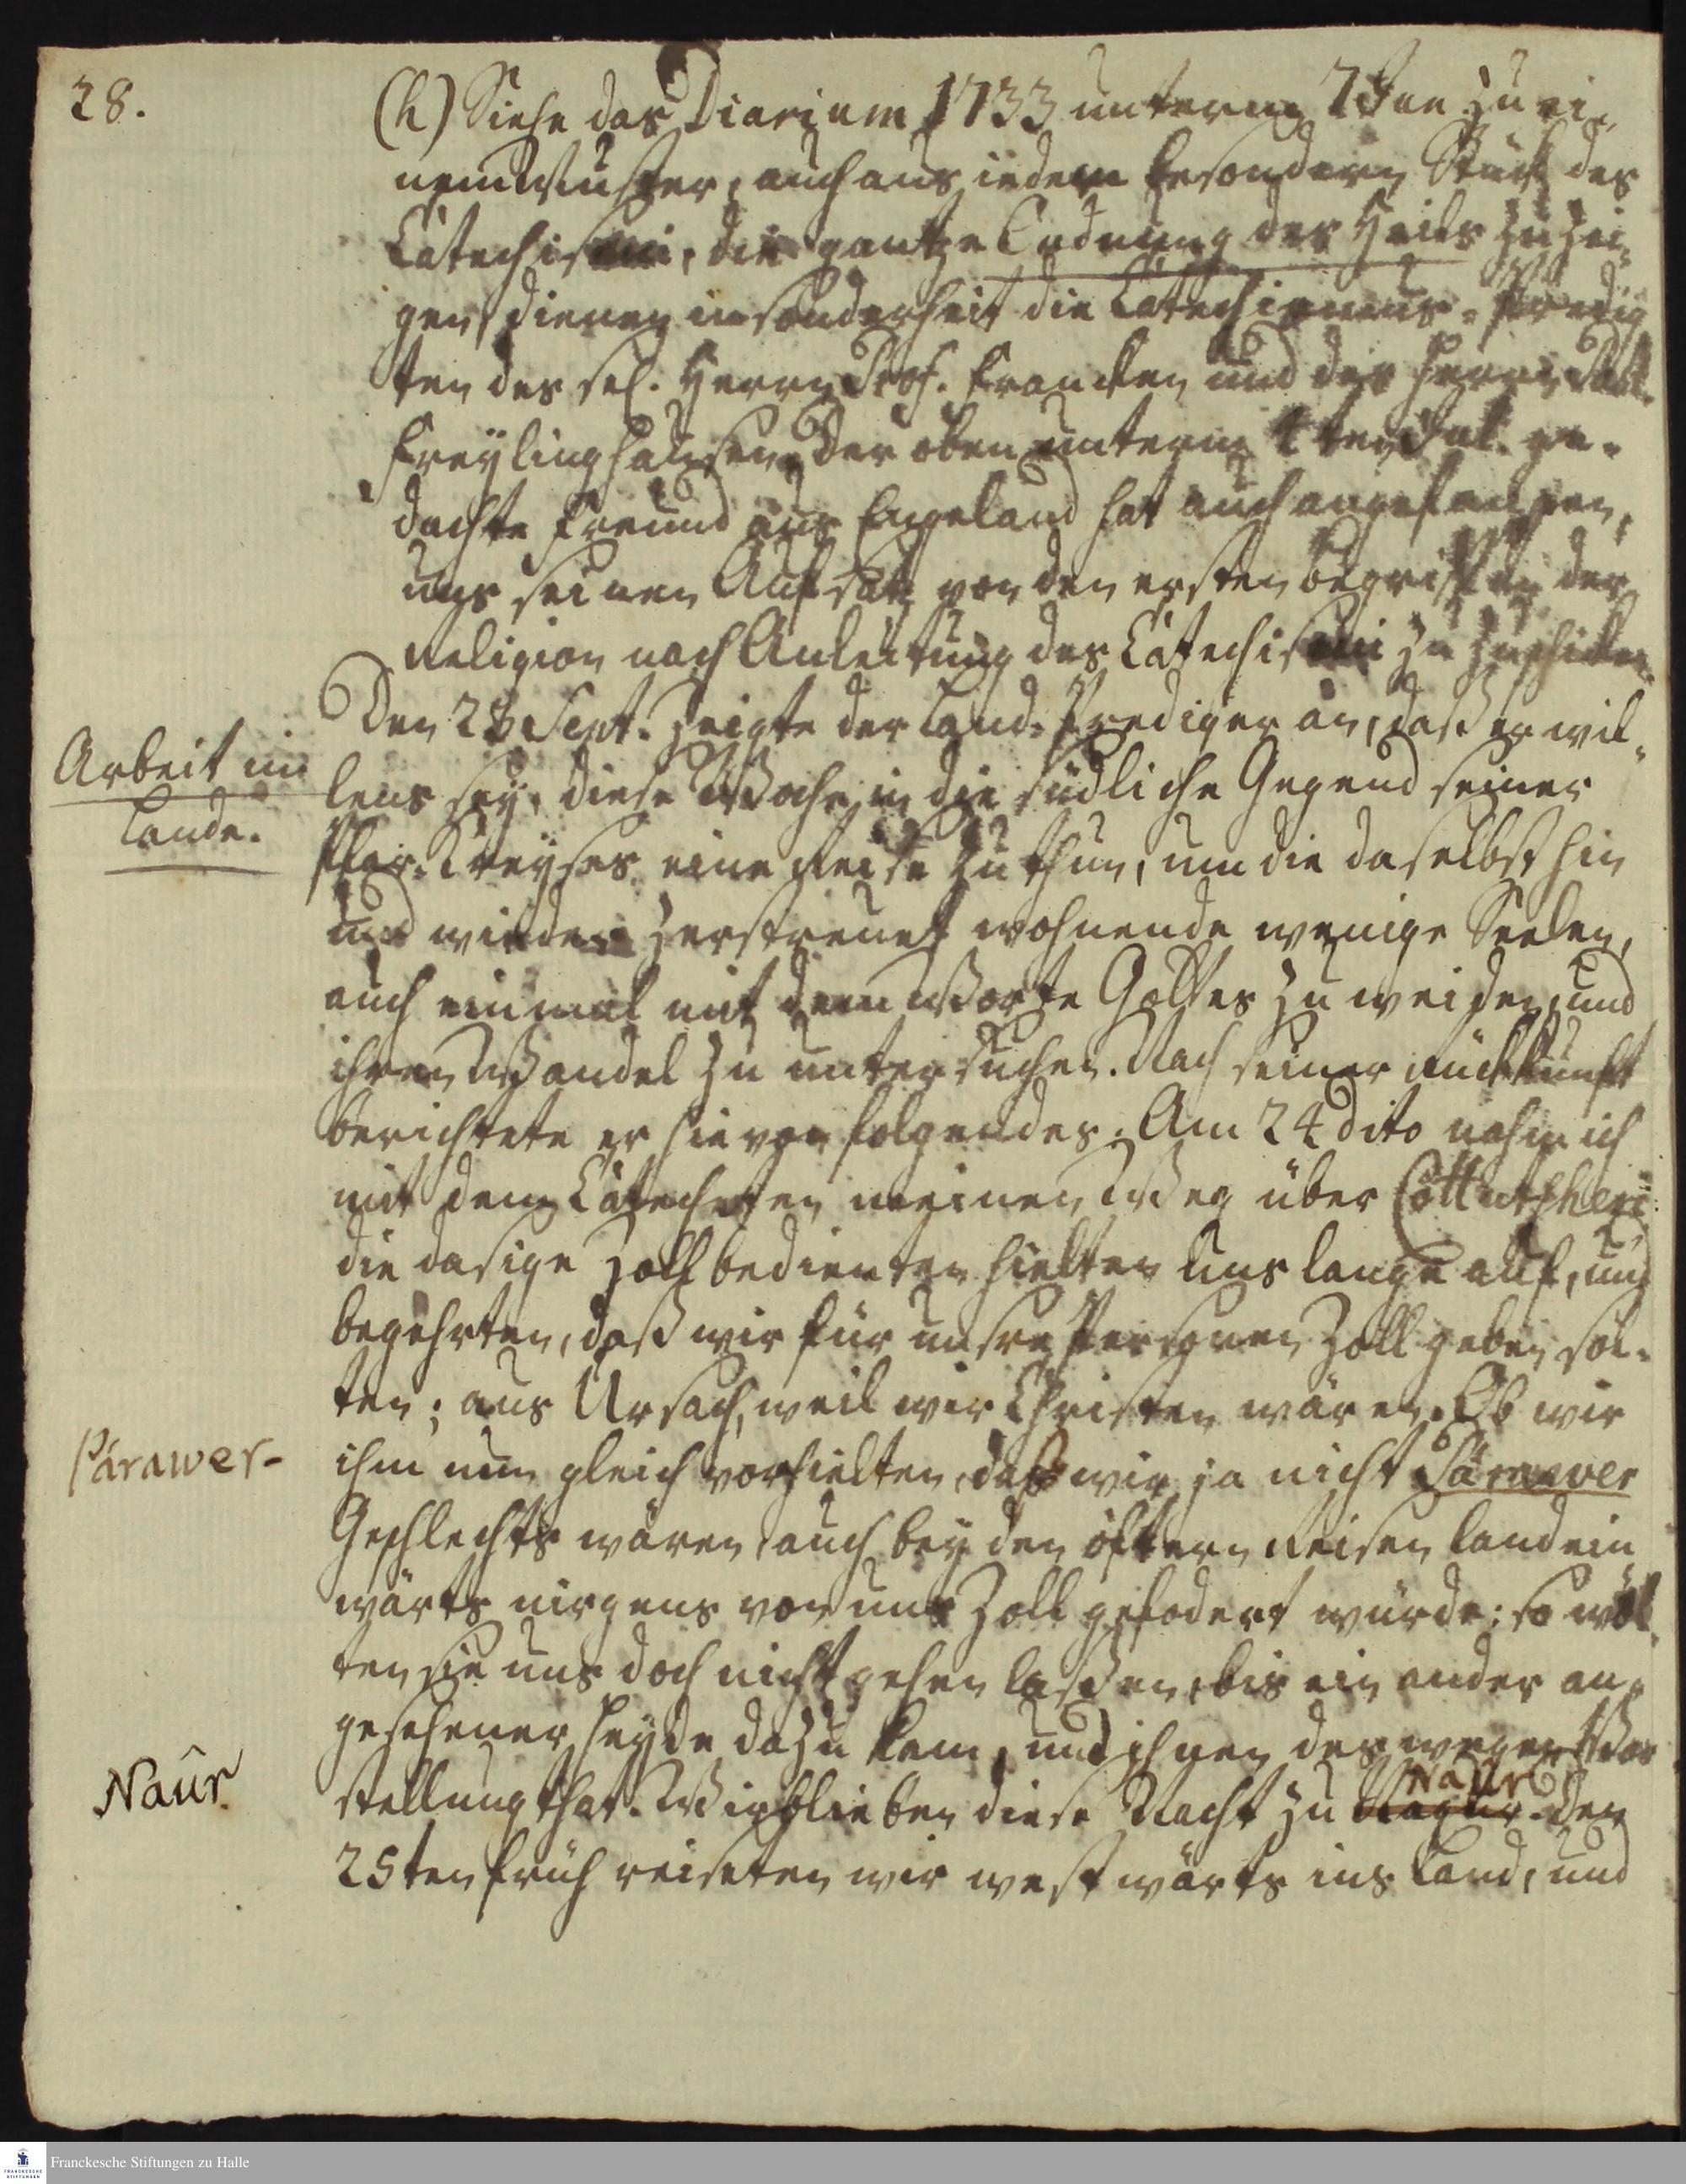 28.
(h) Siehe das Diarium 1733 unterm 7 Jan zu ei-
nem Muster, auch aus iedem besondern Stück des
Catechismi, die gantze Ordnung des Heils zu zei-
gen, dienen insonderheit die Catechismus-Predig
ten des sel. Herrn Prof. Francken und des Herrn Past.
Freylinghausen. Der oben unterm 4ten Jul. ge-
dachte Freund aus Engeland hat auch angefangen,
uns seinen Aufsatz von den ersten begriffen der
Religion nach Anleitung des Catechismi zu zuschicken.
Den 23 Sept. zeigte der Land-Prediger an, daß er wil-
lens sey, diese Woche in die südliche Gegend seines
Creyses eine Reise zu thun, um die daselbst hin
und wieder zerstreuet wohnende wenige Seelen,
auch einmal mit dem Worte Gottes zu weiden, und
ihren Wandel zu untersuchen. Nach seiner Rückkunft
berichtete er hievon folgendes: Am 24 dito nahm ich
mit dem Catecheten meinen Weg über Cottutscheri
die dasige Zollbedienten hielten uns lange auf, und
begehrten, daß wir für unsre Personen Zoll geben sol-
ten; aus Ursach, weil wir Christen wären. Ob wir
ihm nun gleich vorhielten, daß wir ja nicht Párawer
Geschlechts wären, auch bey den öftern Reisen landein
wärts nirgens von uns Zoll gefodert würde; so wol-
ten sie uns doch nicht gehen laßen, bis ein ander an-
gesehener Heyde dazu kam, und ihnen deswegen Vor
stellung that. Wir blieben diese Nacht zu Naûr. Den
25ten früh reiseten wir westwärts ins Land, und
Arbeit im
Lande.
Párawer-
Naûr
Franckesche Stiftungen zu Halle